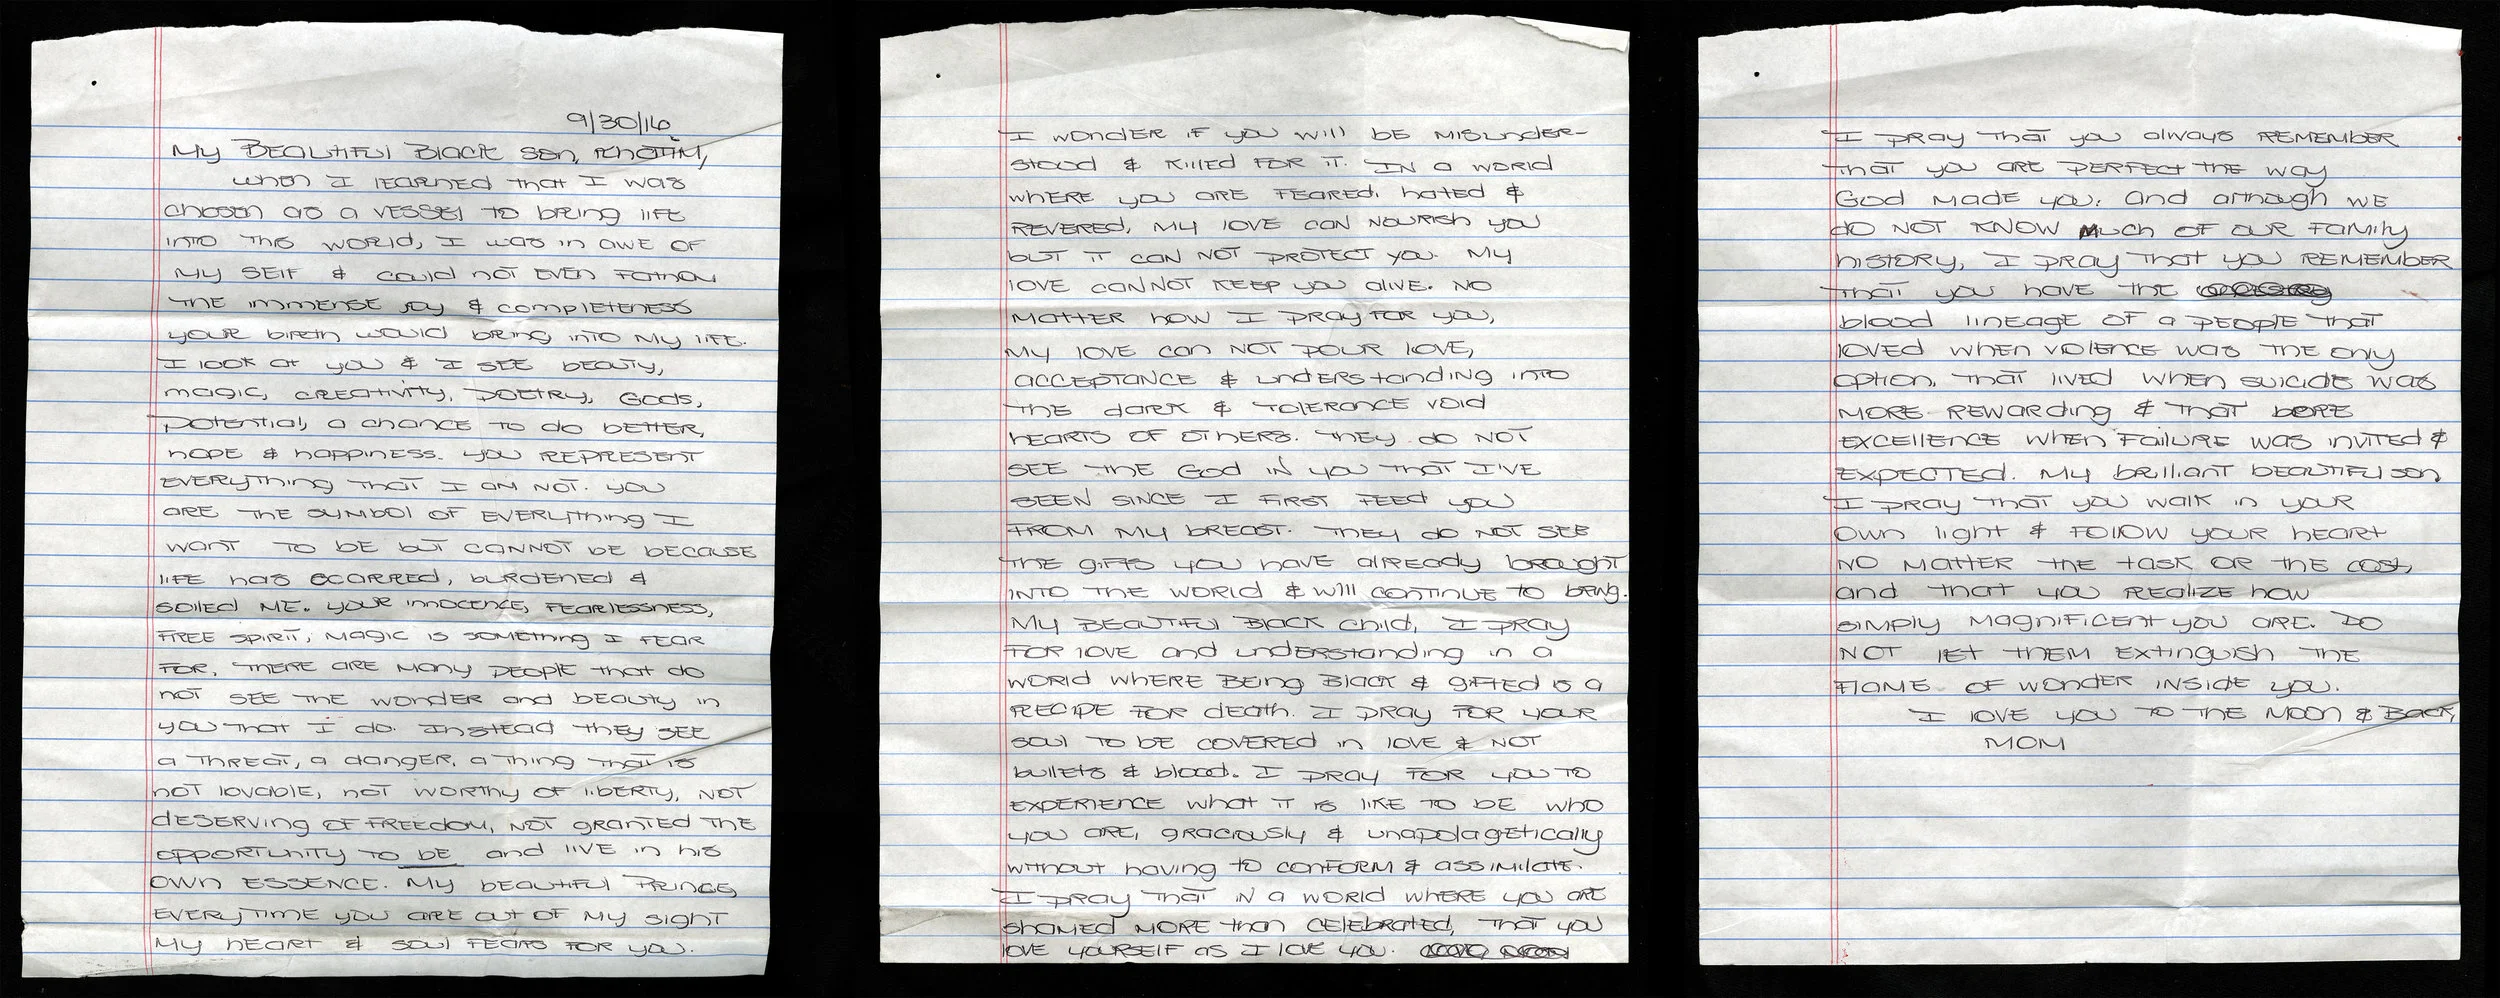 9/30/16
My Beautiful Black son, Khotim,
when I learned that I was
chosen as a vessel to bring life
into this world, I was in awe of
my self & could not even fathom
the immense joy & completeness
your birth would bring into my life.
I look at you & I see beauty,
magic, creativity, poetry, Gods,
potential, a chance to do better,
hope & happiness. You represent
everything that I am not. You
are the symbol of everything I
want to be but cannot be because
life has scarred, burdened &
soiled me. Your innocence, fearlessness,
free spirit, magic is something I fear
for. There are many people that do
not see the wonder and beauty in
you that I do. Instead they see
a threat, a danger, a thing that is
not lovable, not worthy of liberty, not
deserving of freedom, not granted the
opportunity to be and live in his
own essence. My beautiful Prince,
everytime you are out of my sight
my heart & soul fears for you.
I wonder if you will be misunder-
stood & killed for it. In a world
where you are feared, hated &
revered, my love can nourish you
but it can not protect you. My
love cannot keep you alive. No
matter how I pray for you,
my love can not pour love,
acceptance & understanding into
the dark & tolerance void
hearts of others. They do not
see the God in you that I've
seen since I first feed you
from my breast. They do not see
the gifts you have already brought
into the world & will continue to bring.
My beautiful Black child, I pray
for love and understanding in a
world where being Black & gifted is a
recipe for death. I pray for your
soul to be covered in love & not
bullets & blood. I pray for you to
experience what it is like to be who
you are, graciously & unapolagetically
without having to conform & assimilate.
I pray that in a world where you are
shamed more than celebrated, that you
love yourself as I love you.
I pray that you always remember
that you are perfect the way
God made you. And although we
do not know much of our family
history, I pray that you remember
that you have the
blood lineage of a people that
loved when violence was the only
option, that lived when suicide was
more rewarding & that bore
excellence when failure was invited &
expected. My brilliant beautiful son,
I pray that you walk in your
own light & follow your heart
no matter the task or the cost,
and that you realize how
simply magnificent you are. Do
not let them extinguish the
flame of wonder inside you.
I love you to the Moon & Back,
Mom